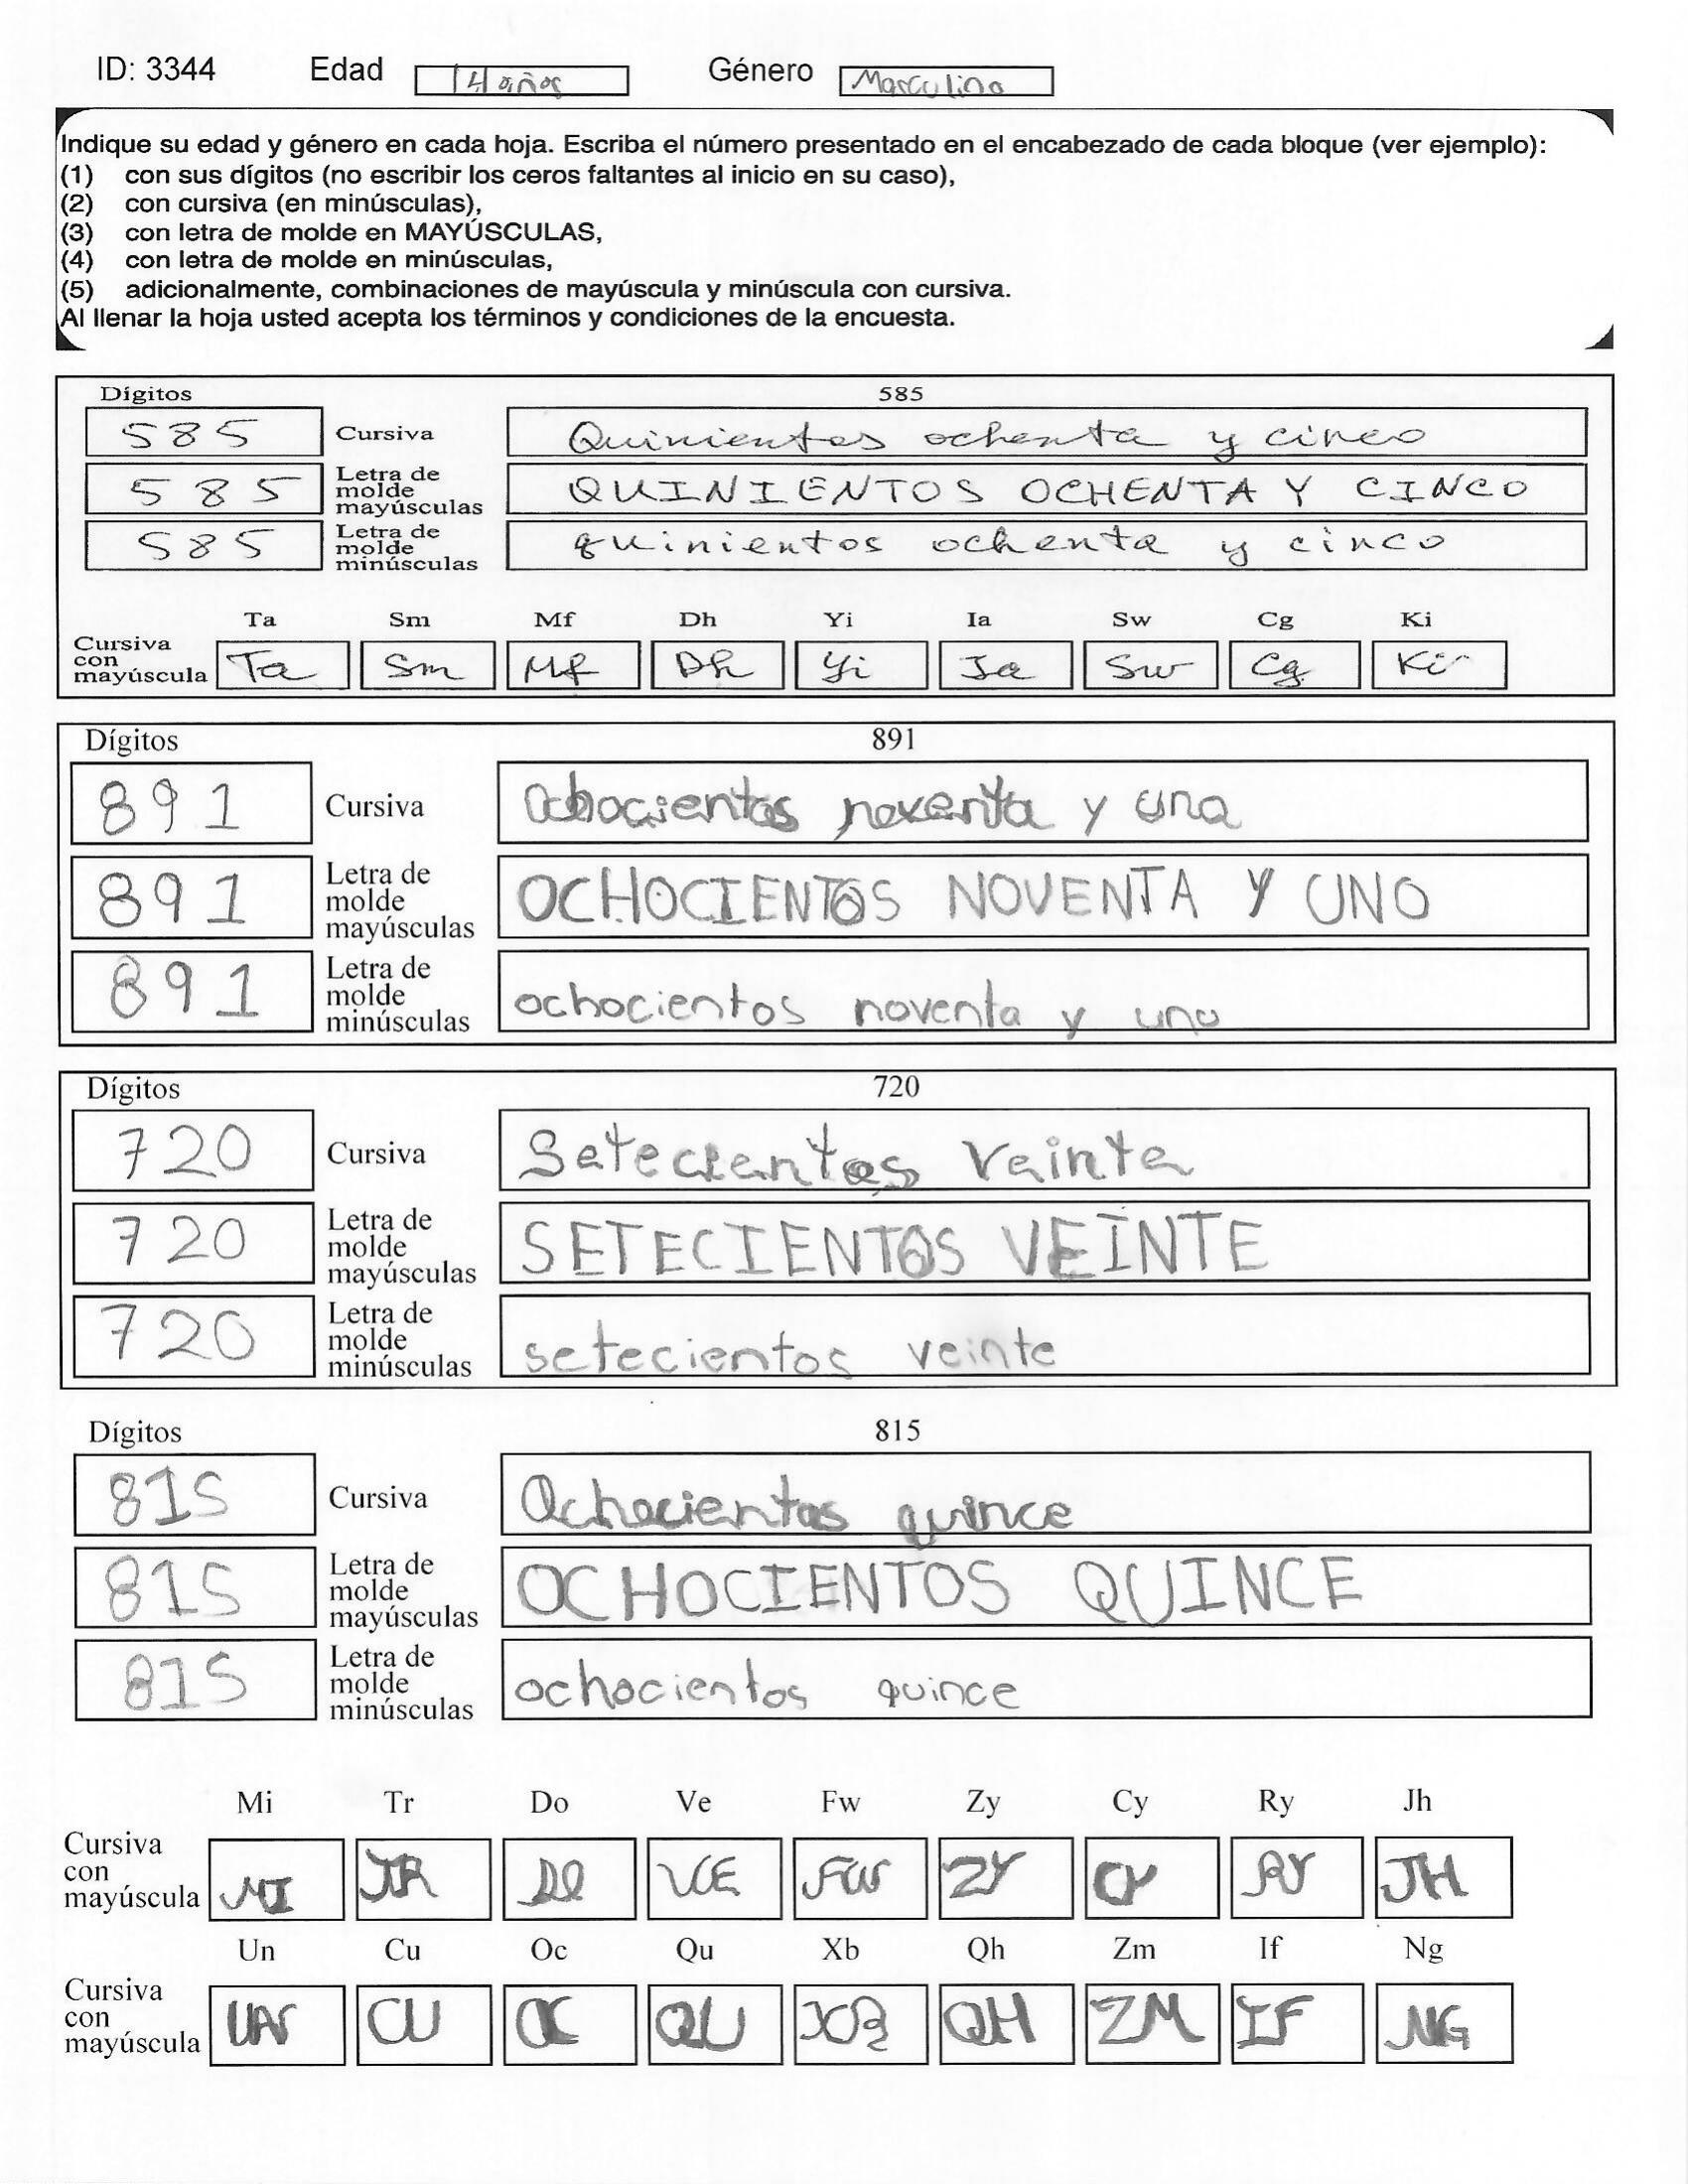 ID: 3344 Edad 14 años Género Masculino
Indique su edad y género en cada hoja. Escriba el número presentado en el encabezado de cada bloque (ver ejemplo):
(1) con sus dígitos (no escribir los ceros faltantes al inicio en su caso),
(2) con cursiva (en minúsculas),
(3) con letra de molde en MAYÚSCULAS,
(4) con letra de molde en minúsculas,
(5) adicionalmente, combinaciones de mayúscula y minúscula con cursiva.
Al llenar la hoja usted acepta los términos y condiciones de la encuesta.
Dígitos 585
585 Cursiva Quinientos ochenta y cinco
585 Letra de molde mayúsculas QUINIENTOS OCHENTA Y CINCO
585 Letra de molde minúsculas quinientos ochenta y cinco
Ta Sm Mf Dh Yi Ia Sw Cg Ki
Cursiva con mayúscula Ta Sm Mf Dh Yi Ia Sw Cg Ki
Dígitos 891
891 Cursiva Ochocientos noventa y uno
891 Letra de molde mayúsculas OCHOCIENTOS NOVENTA Y UNO
891 Letra de molde minúsculas ochocientos noventa y uno
Dígitos 720
720 Cursiva Setecientos Veinte
720 Letra de molde mayúsculas SETECIENTOS VEINTE
720 Letra de molde minúsculas setecientos veinte
Dígitos 815
815 Cursiva Ochocientos quince
815 Letra de molde mayúsculas OCHOCIENTOS QUINCE
815 Letra de molde minúsculas ochocientos quince
Mi Tr Do Ve Fw Zy Cy Ry Jh
Cursiva con mayúscula MI TR DO VE FW ZY CY RY JH
Un Cu Oc Qu Xb Qh Zm If Ng
Cursiva con mayúscula UN CU OC QU XB QH ZM IF NG